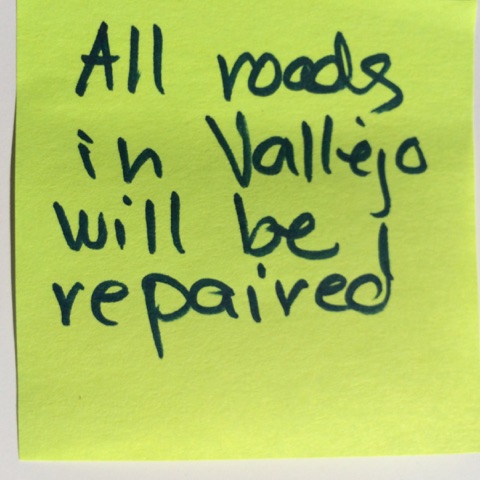 All roads
in Vallejo
will be
repaired